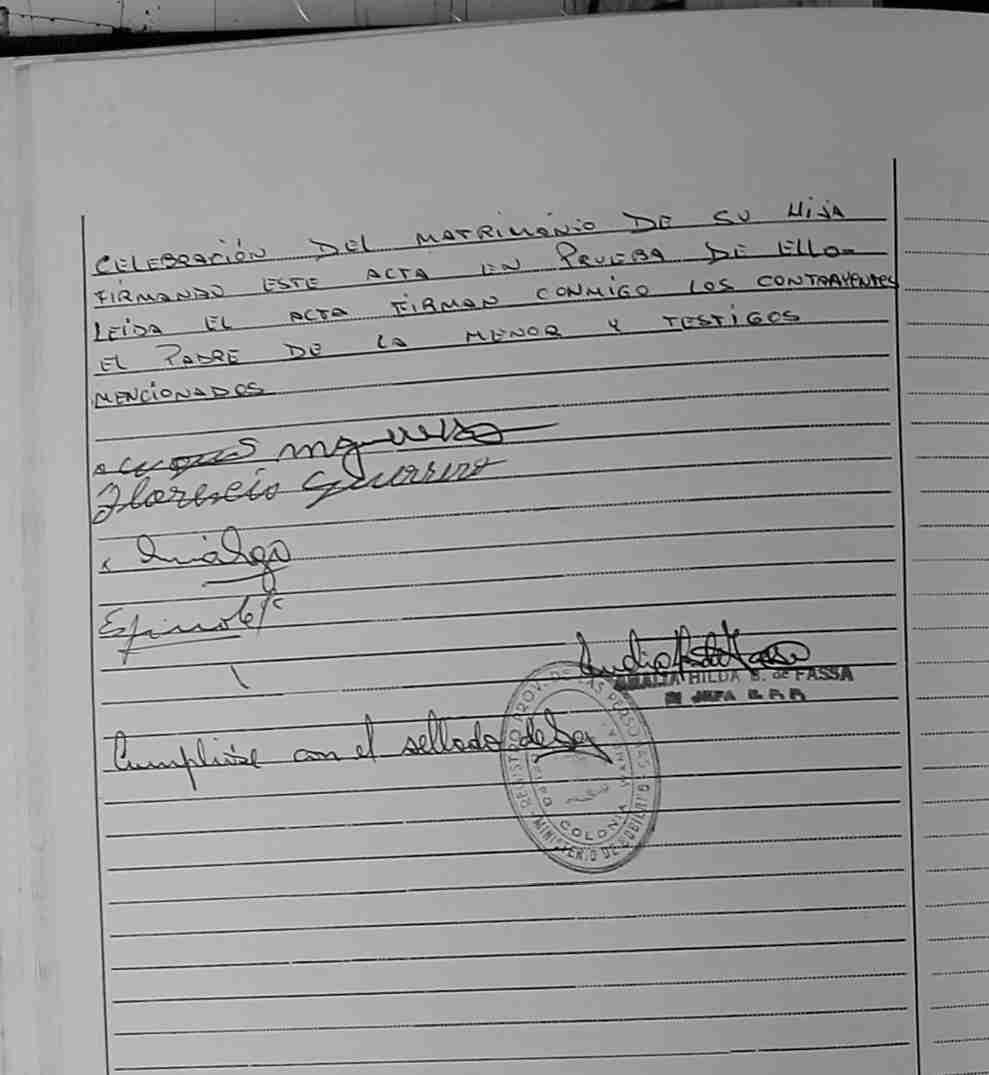 CELEBRACIÓN DEL MATRIMONIO DE SU HIJA
FIRMANDO ESTE ACTA EN PRUEBA DE ELLO-
LEIDA EL ACTA FIRMAN CONMIGO LOS CONTRAYENTES
EL PADRE DE LA MENOR Y TESTIGOS
MENCIONADOS
Florencio Guerrero
AMALIA HILDA B. de FASSA
JEFA
Cumplióse con el sellado de Ley
REGISTRO PROV. DE LAS PERSONAS
MINISTERIO DE GOBIERNO
COLONIA